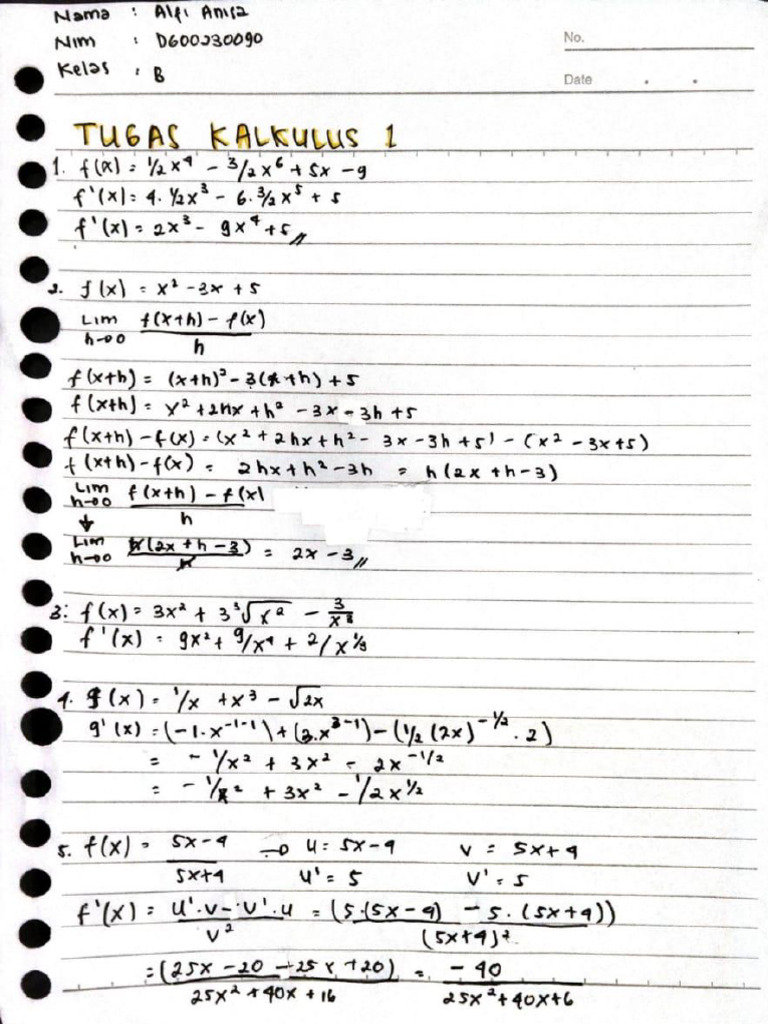 Nama : Alfi Anisa
Nim : D600230090
Kelas : B
No.
Date
TUGAS KALKULUS 1
1. f(x) = 1/2 x⁴ - 3/2 x⁶ + 5x - 9
f'(x) = 4. 1/2 x³ - 6. 3/2 x⁵ + 5
f'(x) = 2x³ - 9x⁴ + 5 //
2. f(x) = x² - 3x + 5
Lim h→0 f(x+h) - f(x) / h
f(x+h) = (x+h)² - 3(x+h) + 5
f(x+h) = x² + 2hx + h² - 3x - 3h + 5
f(x+h) - f(x) = (x² + 2hx + h² - 3x - 3h + 5) - (x² - 3x + 5)
f(x+h) - f(x) = 2hx + h² - 3h = h(2x + h - 3)
Lim h→0 f(x+h) - f(x) / h
↓
Lim h→0 h(2x + h - 3) / h = 2x - 3 //
3. f(x) = 3x² + 3 ³√x² - 3/x³
f'(x) = 9x² + 9/x⁴ + 2/x^1/3
4. g(x) = 1/x + x³ - √2x
g'(x) = (-1.x^-1-1) + (3.x^3-1) - (1/2 (2x)^-1/2 . 2)
= - 1/x² + 3x² - 2x^-1/2
= - 1/x² + 3x² - 1/2x^1/2
5. f(x) = 5x-4 / 5x+4 → u = 5x-4 v = 5x+4
u' = 5 v' = 5
f'(x) = u'.v - v'.u / v² = (5.(5x-4) - 5.(5x+4)) / (5x+4)²
= (25x - 20 - 25x + 20) / 25x² + 40x + 16 = -40 / 25x² + 40x + 6